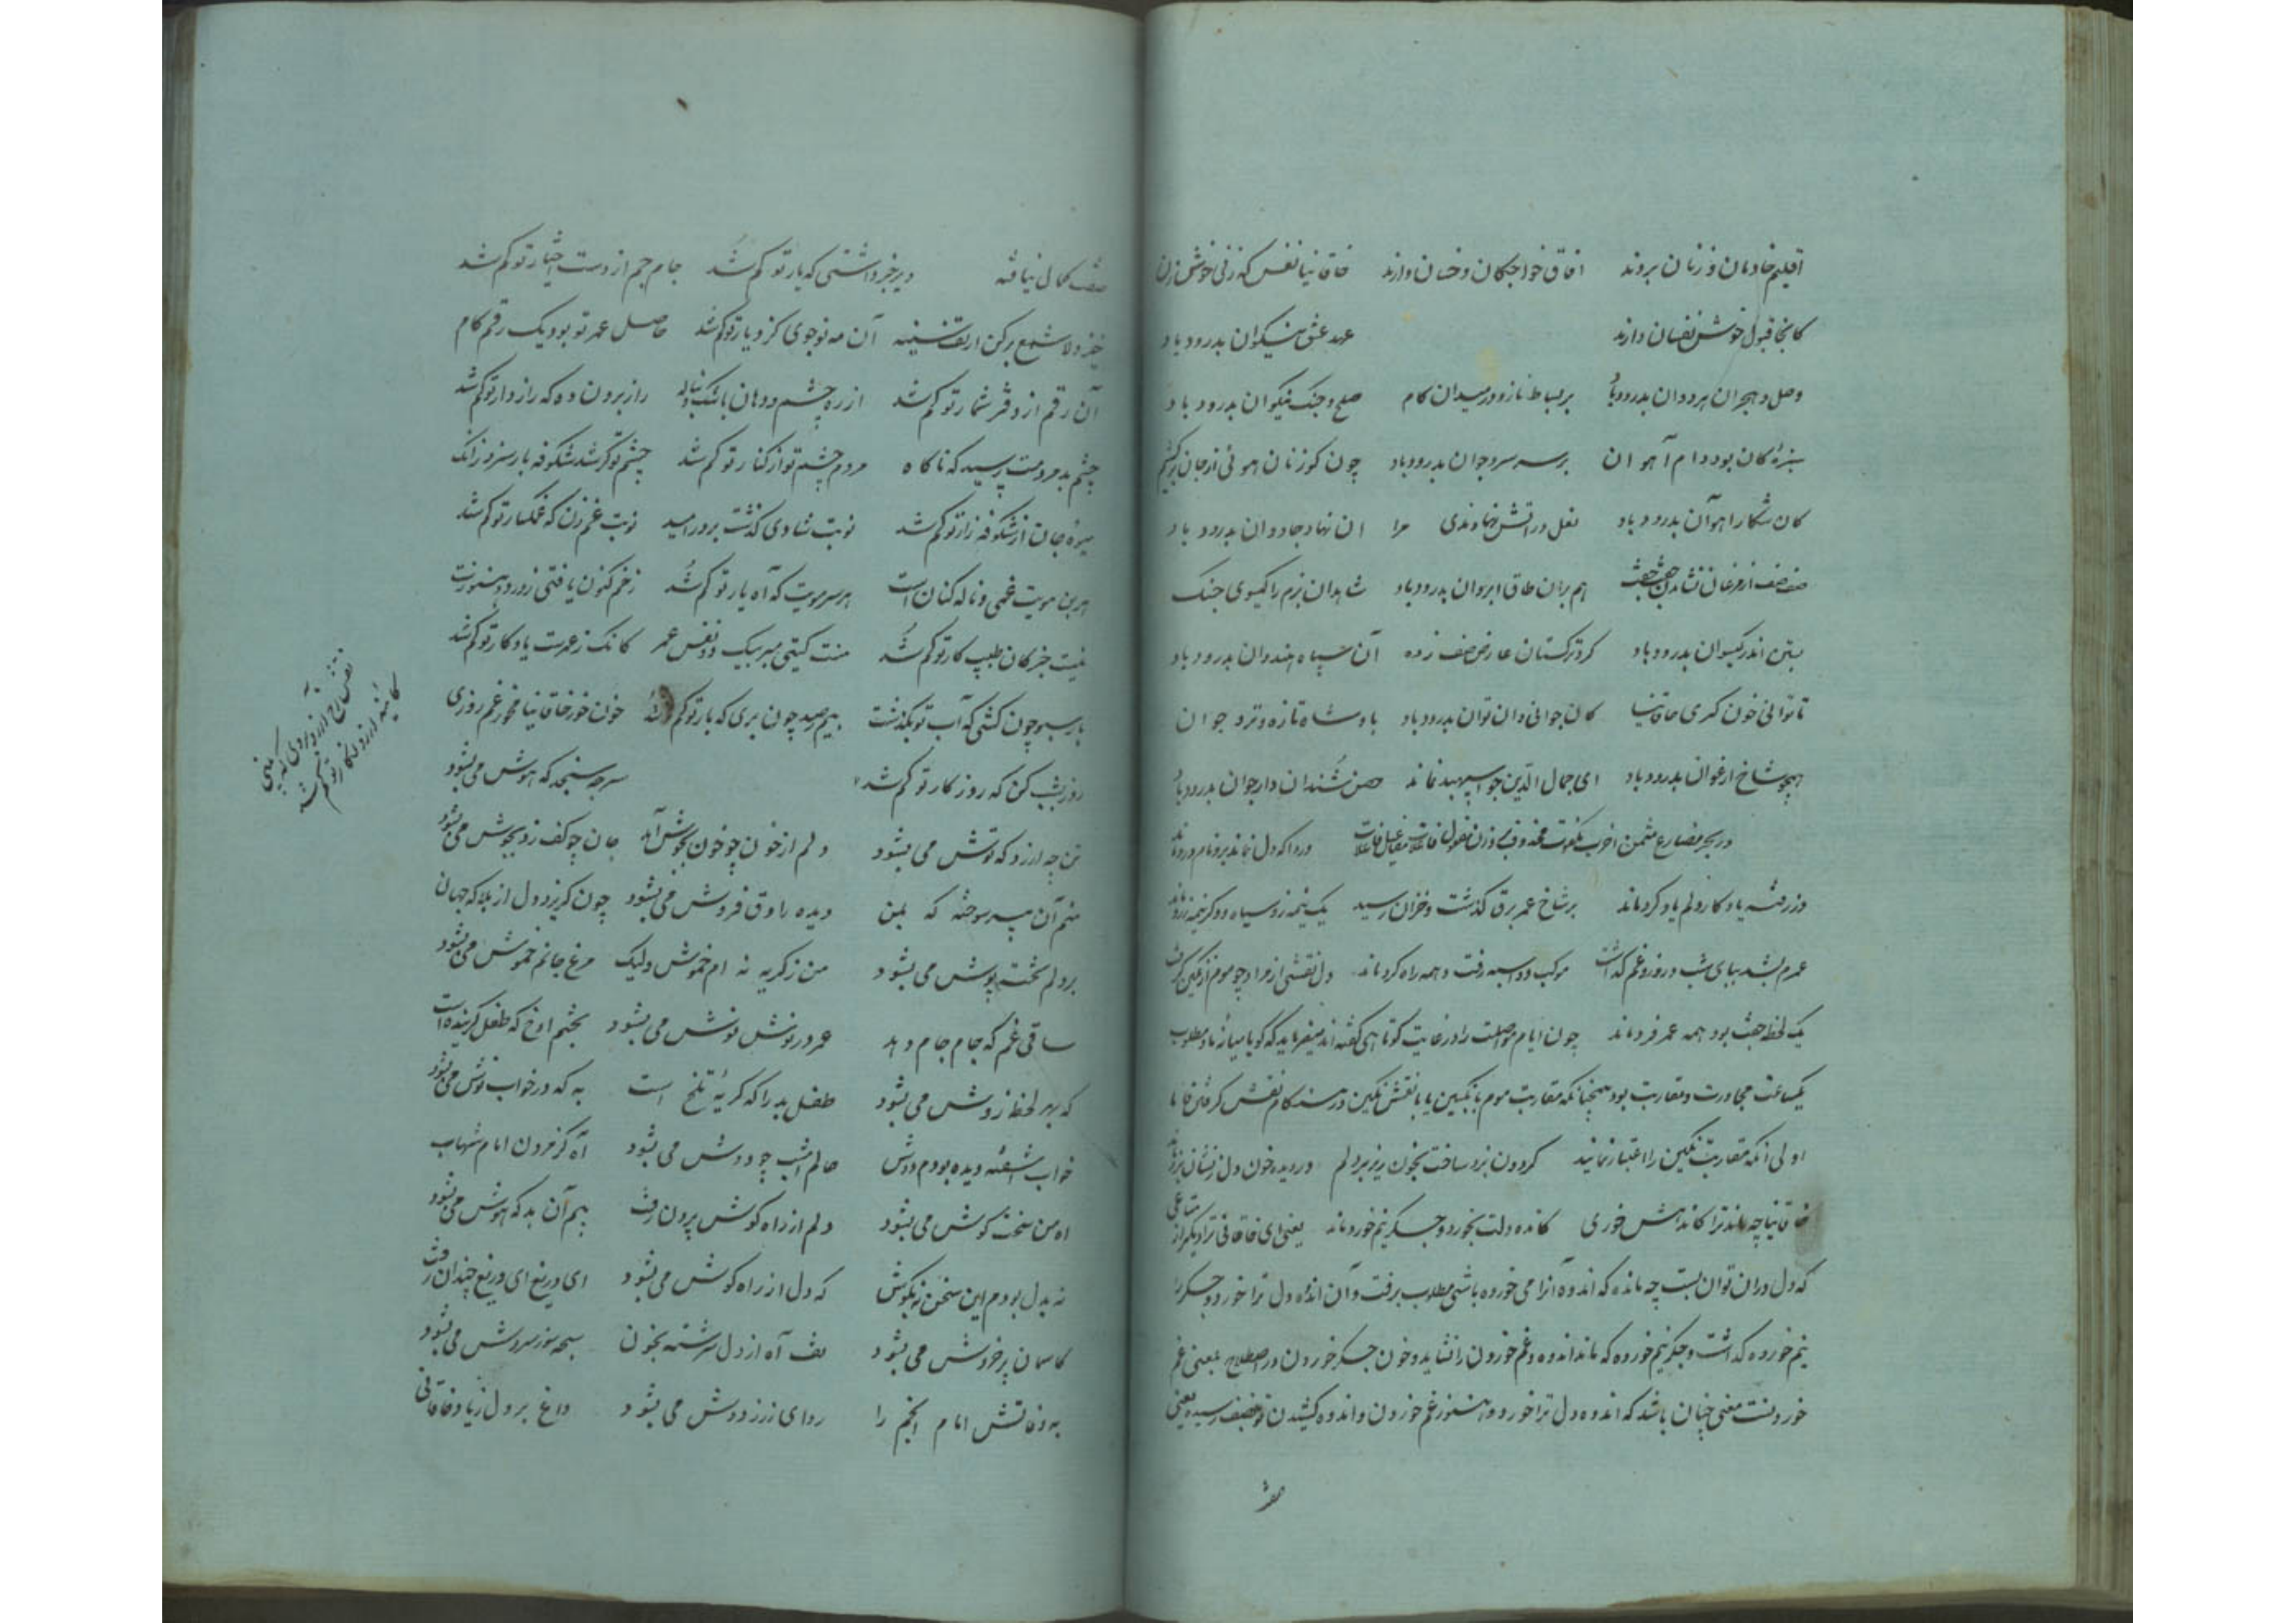 اقلیم خادمان و زنان بروند افاق خواجکان و خسان دارند خاقانیا نفس که زنی خوش زن
کانجا قبول خوش نفسان دارند عهد عشق نیکوان بدرود باد
وصل و هجران هر دوان بدرود باد بر بساط ناز و در میدان کام صلح و جنک نیکوان بدرود باد
سبزه کان بود دام آهوان بر سر سرو جوان بدرود باد چون کوزنان هوئی از جان برکشم
کان شکار آهوان بدرود باد نعل در آتش نهاوندی مرا ان نهاد جادوان بدرود باد
هم بران طاق ابروان بدرود باد شاهدان بزم را کیسوی جنک
بستن اندر کیسوان بدرود باد کرد ترکستان عارض صف زده آن سپاه هندوان بدرود باد
تا توانی خون کری خاقانیا کان جوانی وان توان بدرود باد پادشاه تازه و تر و جوان
همچو شاخ ارغوان بدرود باد ای جمال الدین چو اسپهبد نماند حصن شندان دار جوان بدرود باد
در بحر مضارع مثمن اخرب مکفوف محذوف بر وزن مفعول فاعلات مفاعیل فاعلات دردا که دل نماند برو نام درد ماند
وز رفته یادکار ولم یاد کرد ماند بر شاخ عمر برق کذشت و خزان رسید یک نیمه زو سیاه و دکر نیمه زرد ماند
عمرم بشد بپای شب و روز و غم کذاشت موکب دو اسبه رفت و همه راه کرد ماند دل نقشی از مراد چو موم از نکین کرفت
یک لحظه جفت بود همه عمر فرد ماند چون ایام مواصلت را در غایت کوتاهی کفته اند میفرماید که کویا میانه ما و مطلوب
یکساعت مجاورت و مقاربت بود همچنانکه مقاربت موم با نکین یا با نقش نکین در هنکام نقش کرفتن فاما
اولی آنکه مقاربت نکین را اعتبار نمائید کردون نبرد ساخت بخون ریز بر دلم در دیده خون دل ز نشان نبرد ماند
خاقانیا چه ماند ترا کاندهش خوری کانده دلت بخورد و جکر نیم خورد ماند یعنی ای خاقانی ترا دیکر از متاعی
که دل دران توان بست چه مانده که اندوه آنرا می خورده باشی مطلوب برفت و آن انده دل ترا خورد و جکر را
نیم خورده کذاشت و جکر نیم خورده که ماند اندوه و غم خوردن را نشاید و خون جکر خوردن در اصطلاح بمعنی غم
خوردنست معنی چنان باشد که اندوه دل ترا خورد و هنوز غم خوردن و اندوه کشیدن تو بنصف رسیده یعنی
بصف کمال نیافته دیر خبر داشتی که یار تو کم شد جام جم از دست اختیار تو کم شد
خیز دلا شمع برکن از تف سینه آن مه نو جوی کز دیار تو کم شد حاصل عمر تو بود یک رقم کام
آن رقم از دفتر شمار تو کم شد از ره چشم و دهان باشک و بناله راز برون ده که رازدار تو کم شد
چشم بد مردمت رسید که ناکاه مردم چشم تو از کنار تو کم شد چشم تو کر شد شکوفه بار سزد زانک
میوه جان از شکوفه زار تو کم شد نوبت شادی کذشت بر در امید نوبت غم زن که غمکسار تو کم شد
هر بن مویت غمی و ناله کنان است هر سر مویت که آه یار تو کم شد زخم کنون یافتی ز درد هنوزت
نیست خبر کان طبیب کار تو کم شد منت کیتی مبر بیک دو نفس عمر کانک ز عمرت یادکار تو کم شد
بار سبو چون کشی که آب تو بکذشت بیم رصد چون بری که بار تو کم شد خون خور خاقانیا مخور غم روزی
روز بشب کن که روزکار تو کم شد سر چه سنجد که هوش می بشود
تن چه ارزد که توش می بشود دلم از خون چو خون بجوش آمد جان چو کف زو بجوش می بشود
منم آن پیر سوخته که بمن دیده راوق فروش می بشود چون کریزد دل از بلا که جهان
بر دلم تخته پوش می بشود من ز کریه نه ام خموش ولیک مرغ جانم خموش می بشود
ساقی غم که جام جام دهد عمر در نوش نوش می بشود بخشم اوخ که طفل کرینده است
که بهر لحظه زوش می بشود طفل بد را که کریه تلخ است به که در خواب نوش می بشود
خواب آشفته دیده بودم دوش حالم امشب چو دوش می بشود آه کز مردن امام شهاب
اه من سخت کوش می بشود دلم از راه کوش بیرون رفت بیم آن بد که هوش می بشود
نه بدل بودم این سخن نه بکوش که دل از راه کوش می بشود ای دریغ ای دریغ چندان رفت
کاسمان پر خروش می بشود تف آه از دل سرشته بخون سبحه سوز سروش می بشود
به وفاتش امام انجم را ردای زر ز دوش می بشود داغ بر دل زیاد خاقانی
کم شد